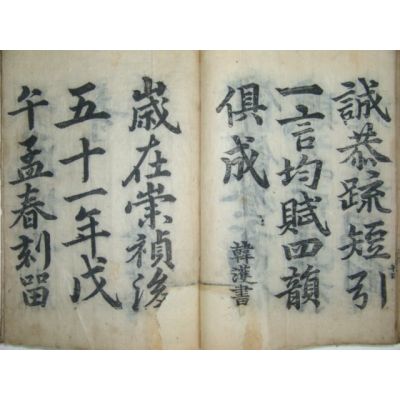 誠恭疏短引
一言均賦四韻
俱成
韓濩書
嵗在崇禎後
五十一年戊
午孟春刻留